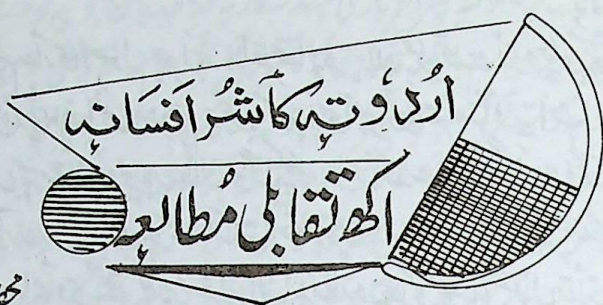 اُردو تہٕ کاشُر افسانہٕ
اکھ تقابلی مُطالعہٕ